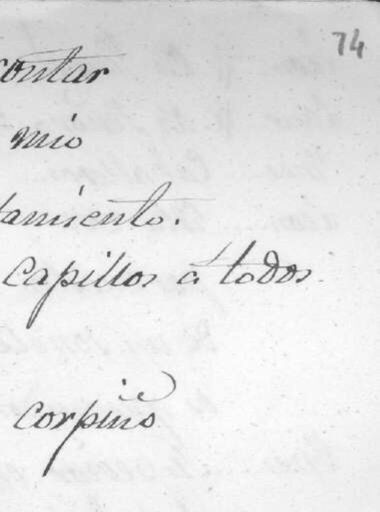 74
contar
mio
tamiento.
capillos á todos.
corpiño